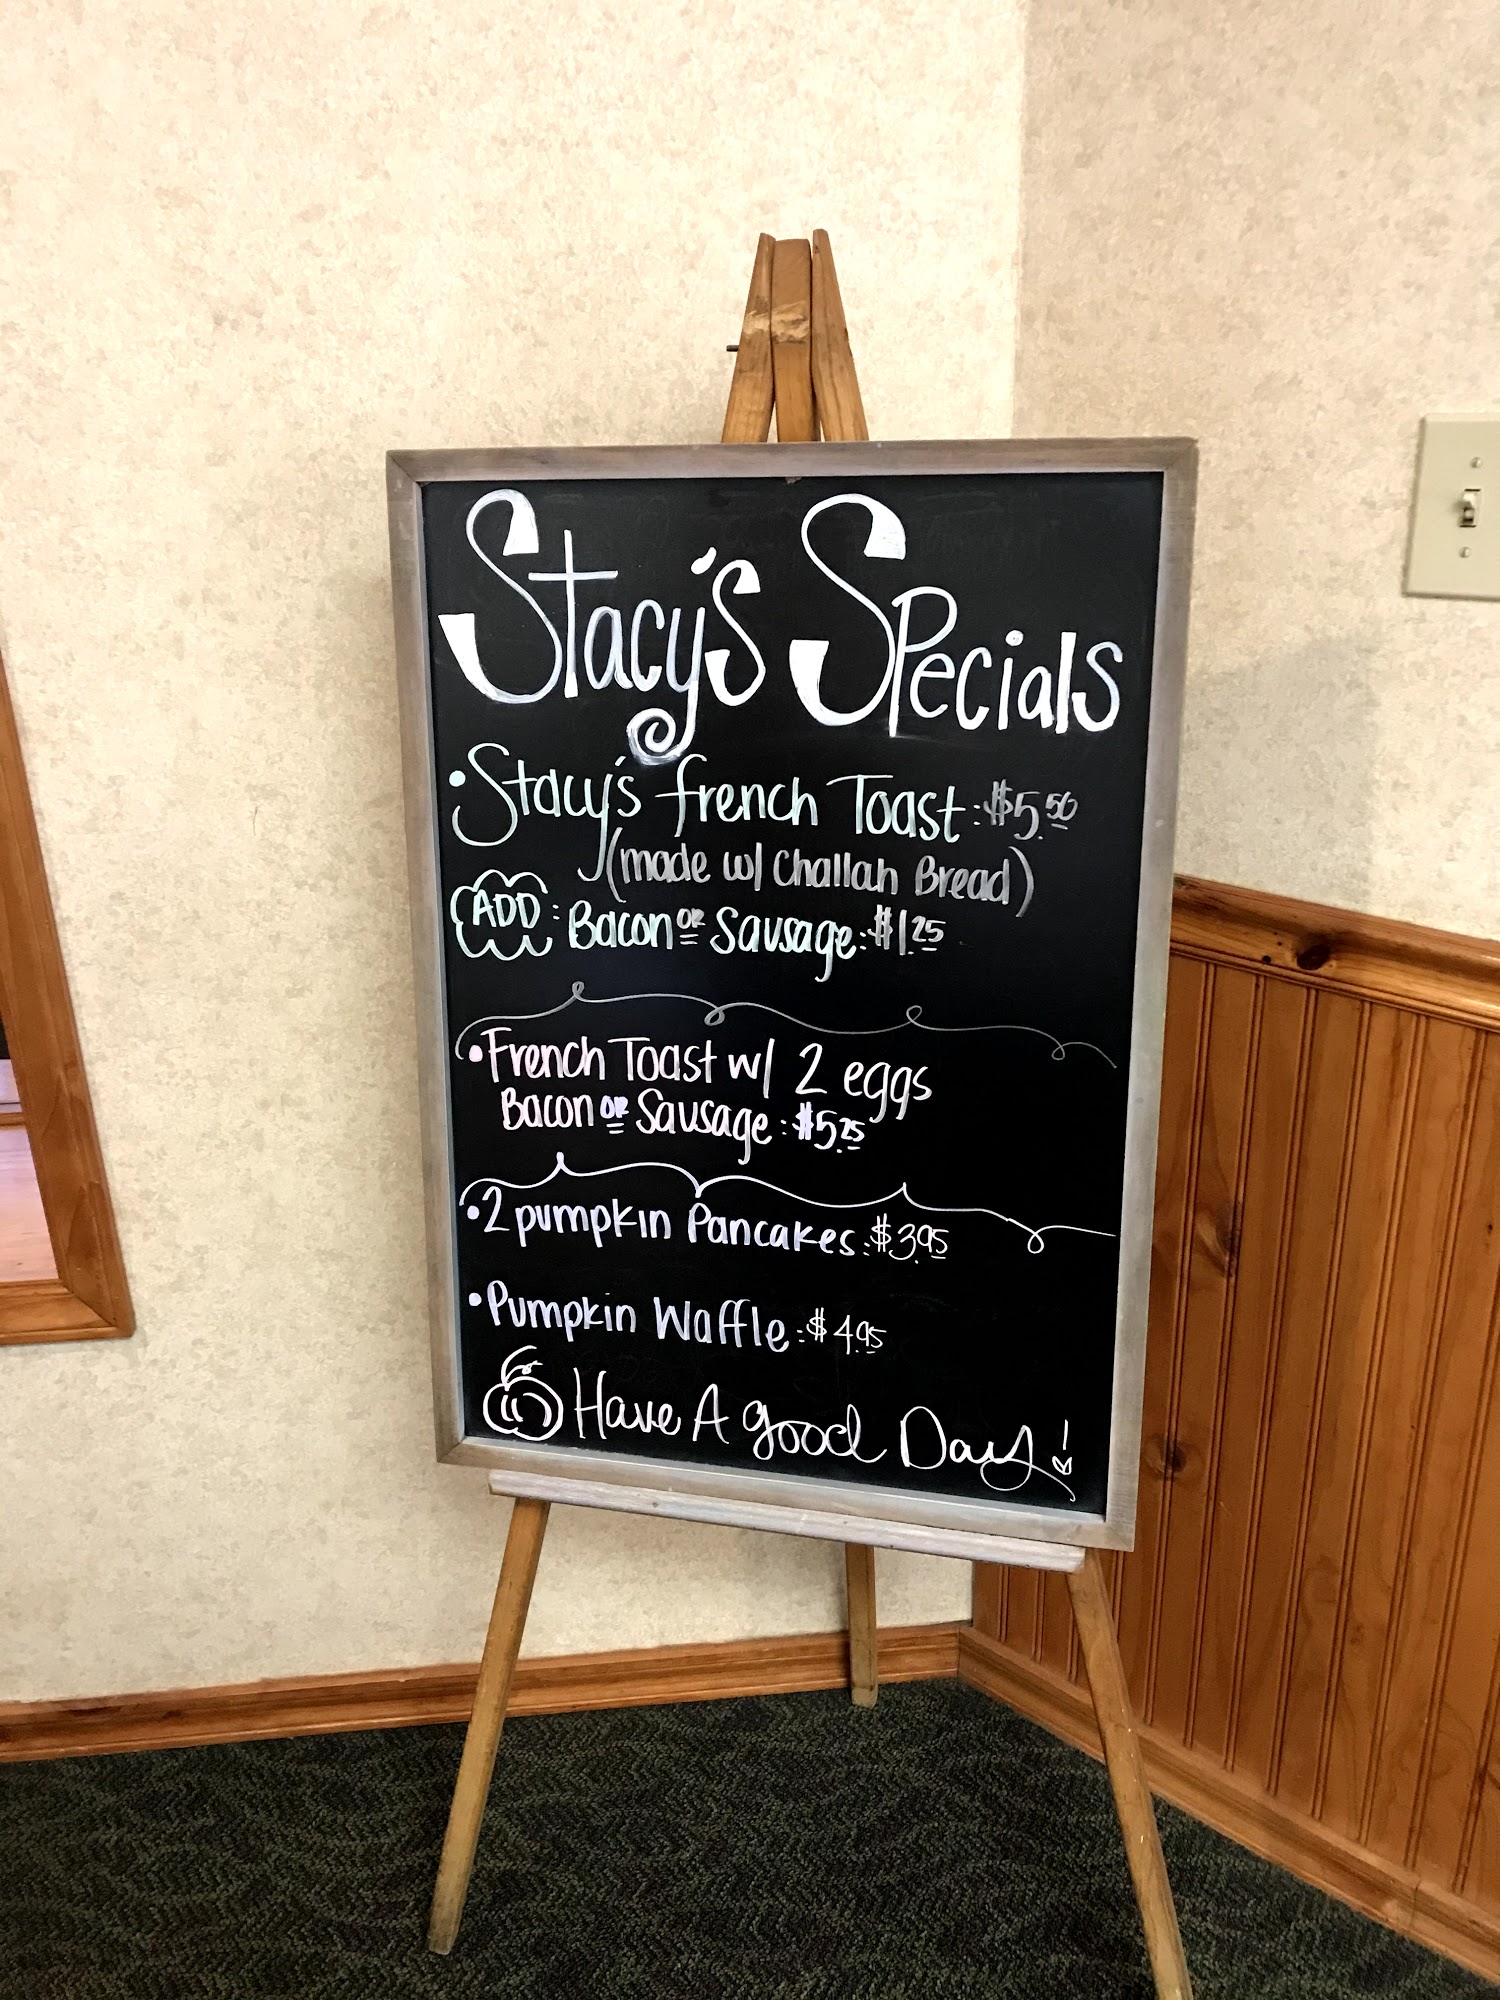 Stacy's Specials
• Stacy's french Toast: $5.50
(made w/ Challah Bread)
ADD: Bacon or Sausage: $1.25
• French Toast w/ 2 eggs
Bacon or Sausage: $5.25
• 2 pumpkin Pancakes: $3.95
• Pumpkin Waffle: $4.95
Have A good Day!